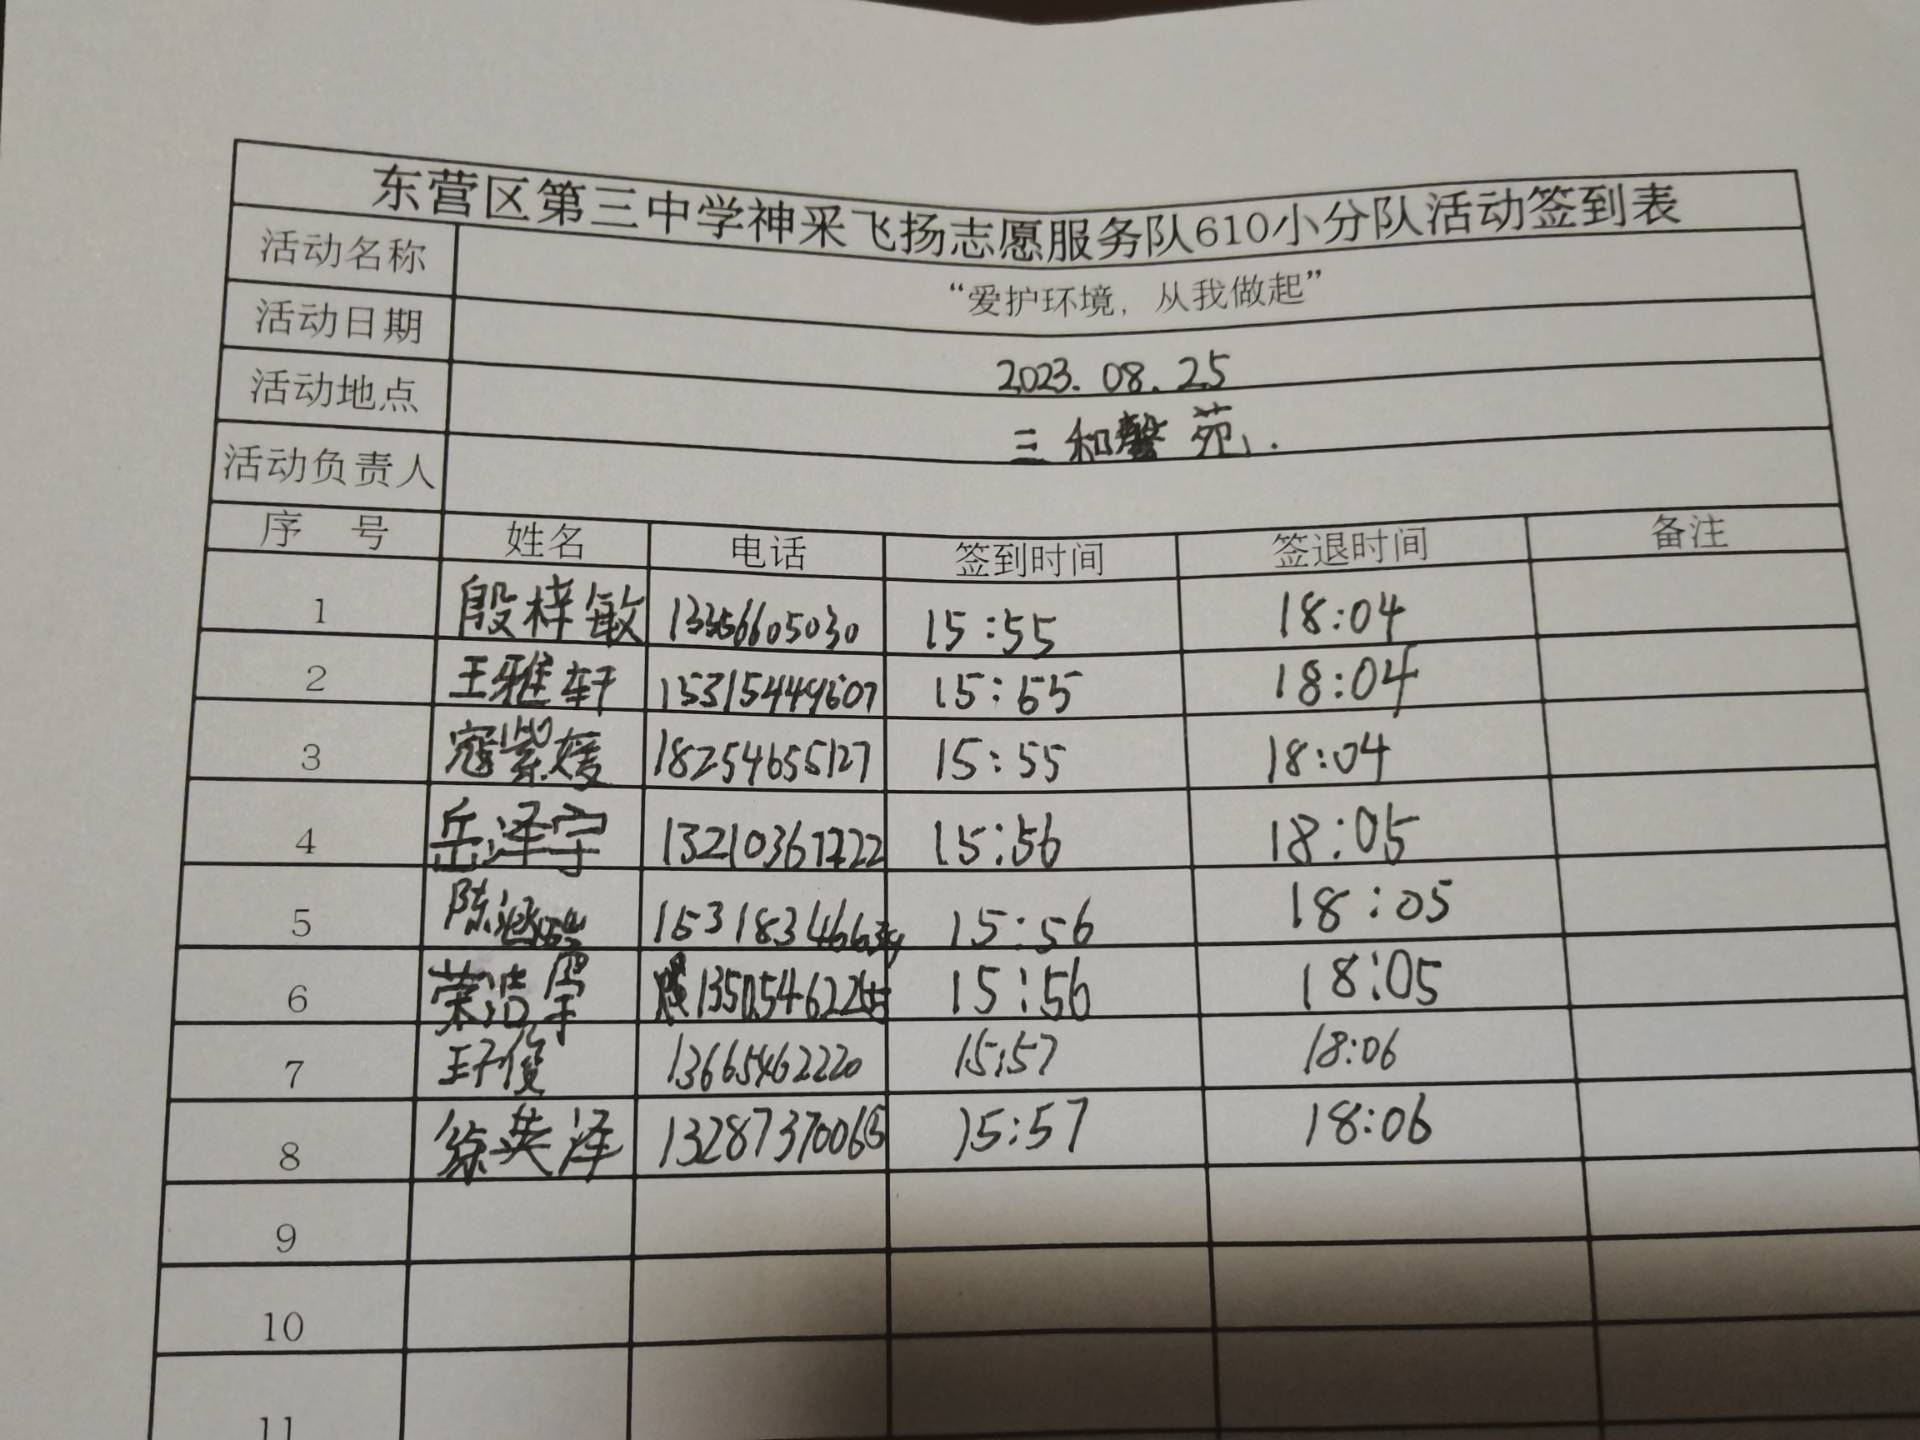 东营区第三中学神采飞扬志愿服务队610小分队活动签到表
活动名称 “爱护环境，从我做起”
活动日期 2023.08.25
活动地点 三和馨苑
活动负责人
序 号 姓名 电话 签到时间 签退时间 备注
1 殷梓敏 13356605030 15:55 18:04
2 王雅轩 15315449607 15:55 18:04
3 寇紫媛 18254655127 15:55 18:04
4 岳泽宇 13210367222 15:56 18:05
5 陈涵 15:56 18:05
6 荣浩宇 15:56 18:05
7 王子俊 13665462220 15:57 18:06
8 徐英泽 15:57 18:06
9
10
11